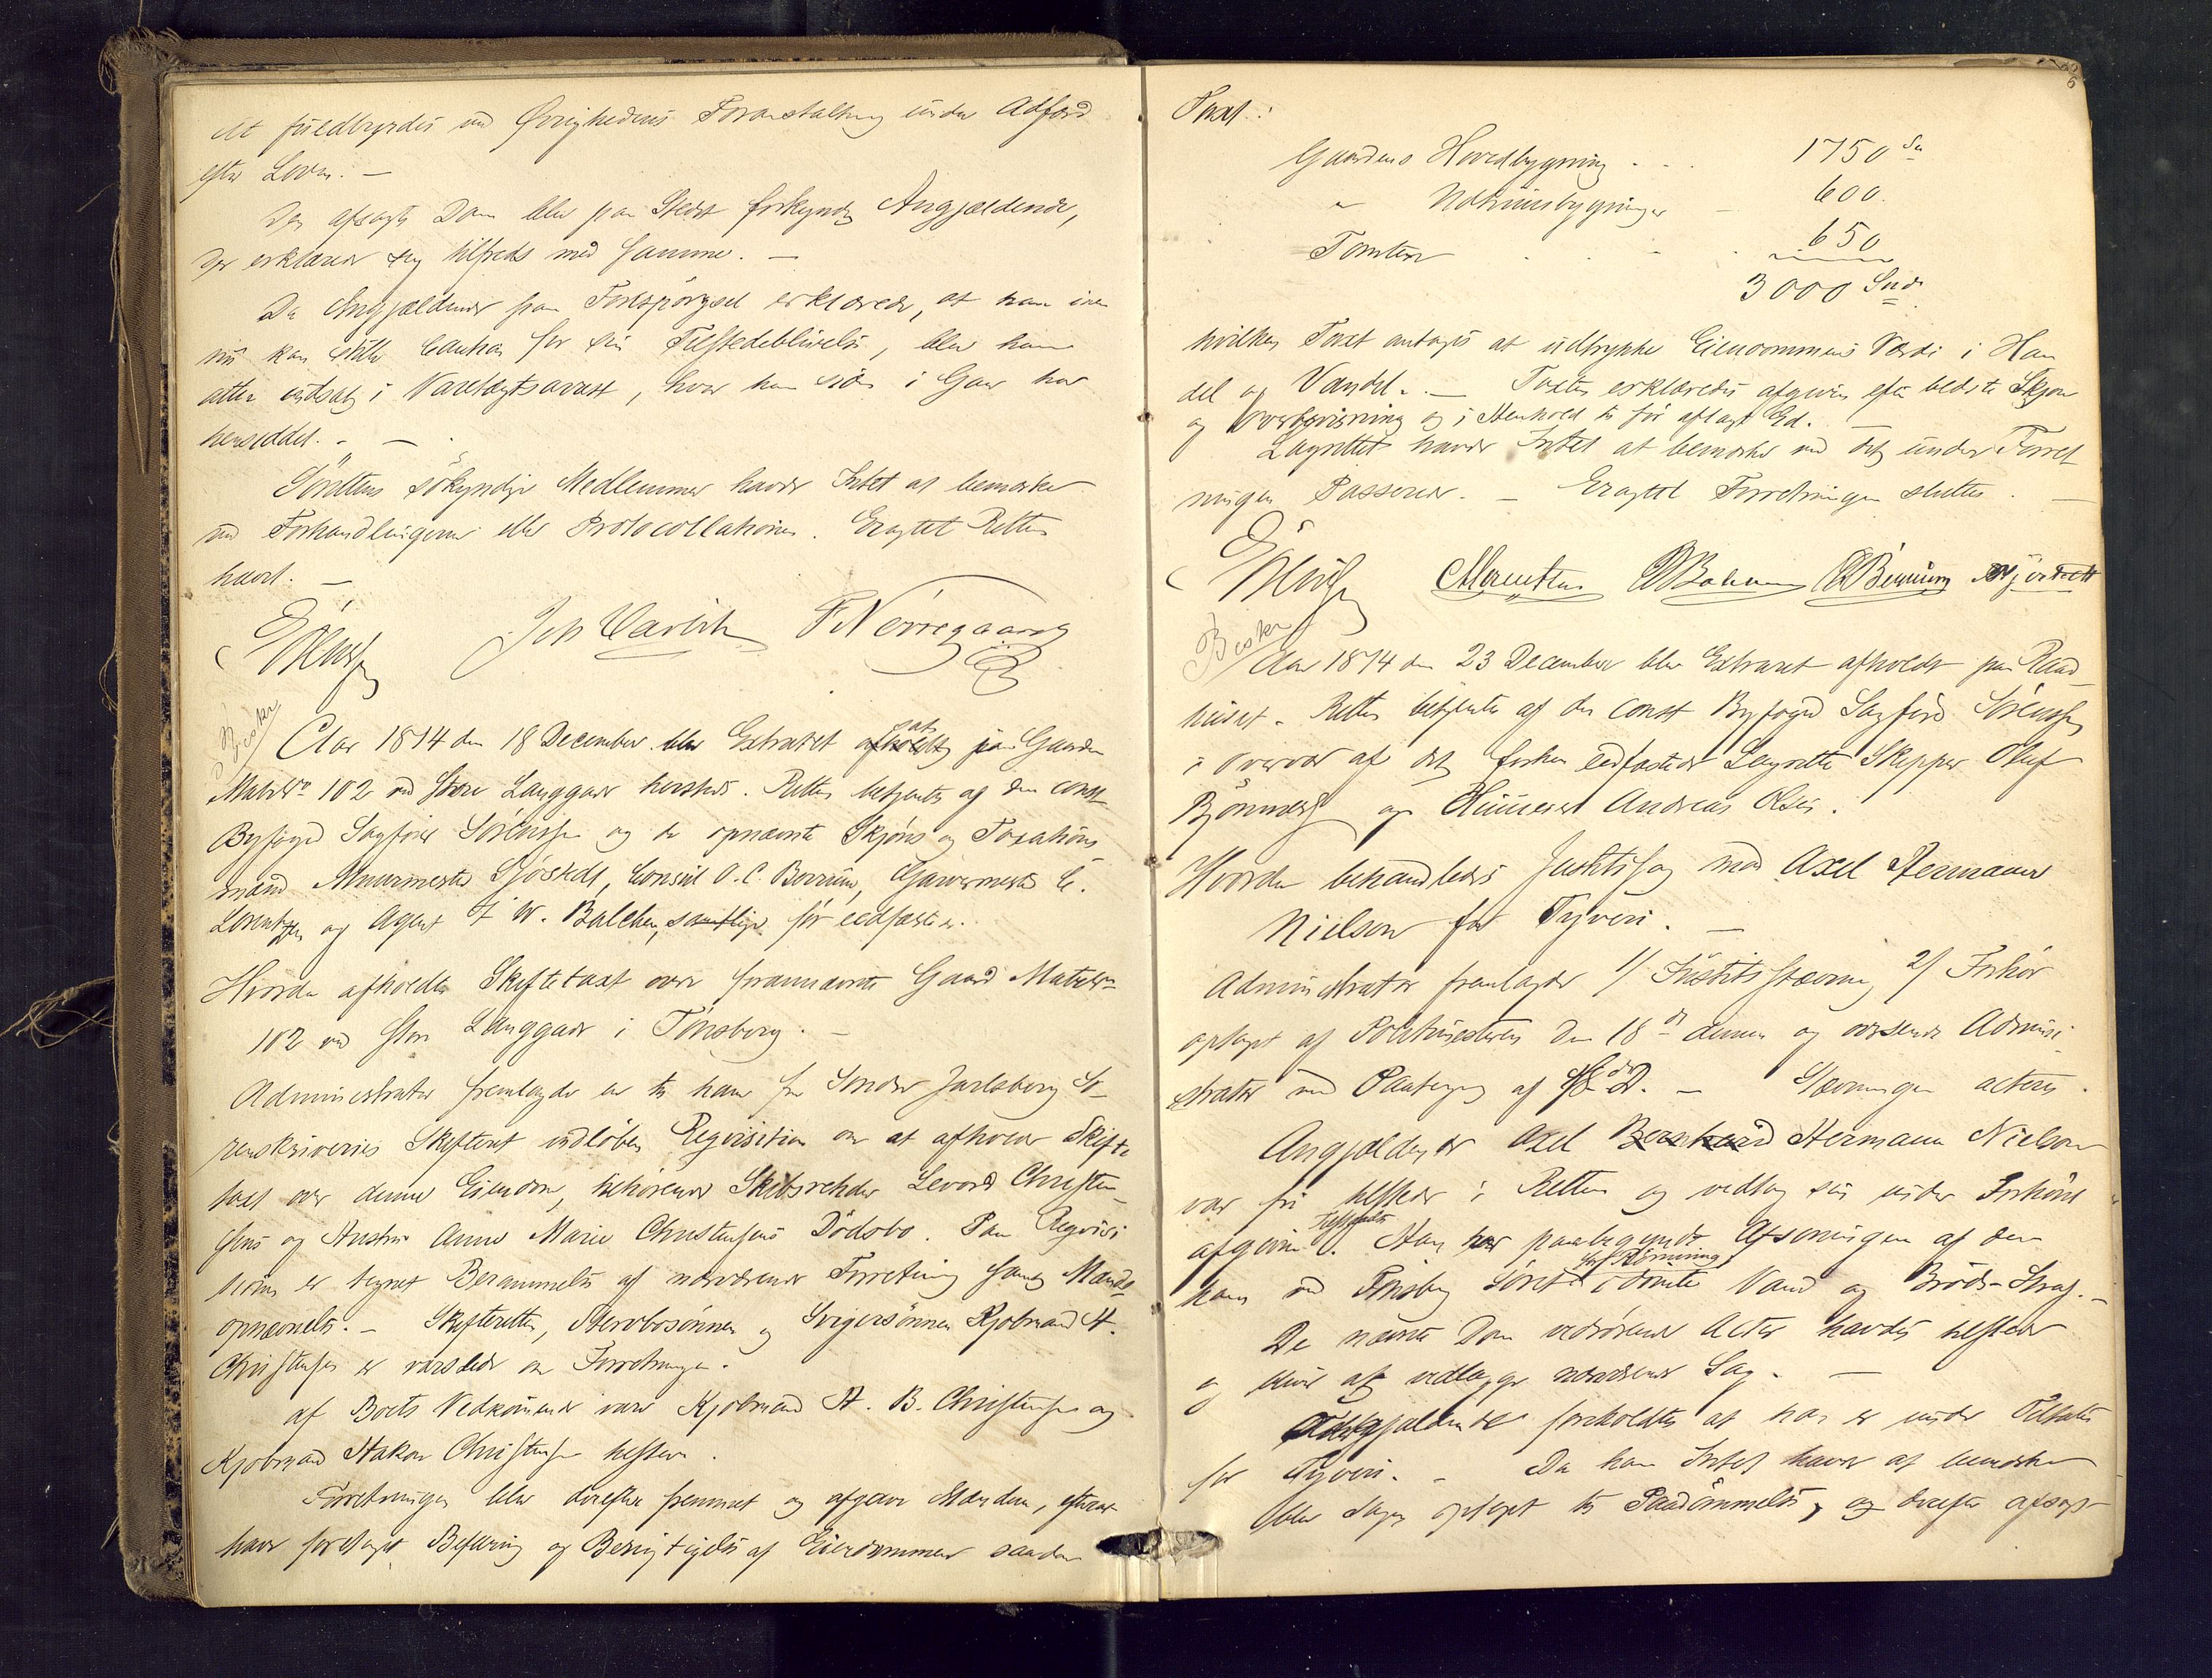 At fuldbyrdes ved Øvrighedens Foranstaltning under Adfærd
efter Loven. —
Den afsagte Dom blev paa Stedet forkyndt Angjældende,
der erklærede sig tilfreds med samme. —
Da Angjældende paa Forespørgsel erklærede, at han ikke
nu kan stille Caution for sin Tilstedeblivelse, blev han
atter indsat i Varetægtsarrest, hvor han siden i Gaar har
hensiddet. —
Sørettens søkyndige Medlemmer havde Intet at bemærke
ved Forhandlingerne eller Protocollationen. Eragtet Retten
hævet. —
Sørensen Jeh Carlsen F Nørregaard
Beskr
Aar 1874 den 18 December blev Extraret sat paa Gaarden
Matr No 102 ved Store Langgade hersteds. Retten betjentes af den const
Byfoged Sagfører Sørensen og de opnævnte Skjøns og Taxations
mænd Muurmester Sjöstedt, Consul O. C. Berrum, Garvermester C.
Lorentzen og Agent F W. Balchen, samtlige før eedfæstede.
Hvorda afholdtes Skiftetaxt over forannævnte Gaard Matr No
102 ved Store Langgade i Tønsberg. —
Administrator fremlagde en til ham fra Søndre Jarlsberg So-
renskriveries Skifteret indløben Reqvisition om at afholde Skifte
taxt over denne Eiendom, tilhørende Skibsreder Levord Christen
sens og Hustru Anne Marie Christensens Dødsbo. Paa Reqvisi
tionen er tegnet Berammelse af nærværende Forretning samt Mænds
opnævnelse. — Skifteretten, Stervbosønnen og Svigersønnen Kjøbmand H.
Christensen er varslede om Forretningen.
af Boets Vedkommende vare Kjøbmand H. B. Christensen og
Kjøbmand Hakon Christensen tilstede.
Forretningen blev derefter fremmet og afgave Mændene, efterat
have foretaget Befaring og Besigtigelse af Eiendommen saadan
Taxt:
Gaardens Hovedbygning . . . 1750 Sp
" Udhuusbygninger — 600.
Tomten . . . . 650
3000 Spd
hvilken Taxt antages at udtrykke Eiendommens Værdi i Han
del og Vandel. — Taxten erklæredes afgiven efter bedste Skjøn
og Overbeviisning og i Henhold til før aflagt Ed.
Lagrettet havde Intet at bemærke ved det under Forret
ningen Passerede. — Eragtet Forretningen sluttet. —
Sørensen CLorentzen FWBalchen OCBerrum Sjöstedt
Beskr
Aar 1874 den 23 December blev Extraret afholdt paa Raad
huset. Retten betjentes af den const Byfoged Sagfører Sørensen
i Overvær af det forhen eedfæstede Lagrette Skipper Oluf
Bjønness og Huuseier Andreas Olsen.
Hvorda behandledes Justitssag mod Axel Hermann
Nielsen for Tyveri. —
Administrator fremlagde 1/ Justits Stævning 2/ Forhør
optaget af Politimesteren den 18de dennes og oversendt Admini
strator med Paategning af s. D. — Stævningen acteres.
Angjældende Axel Hermann Nielsen
var fri tilstede i Retten og vedtog sin under Forhøret
afgivne Tilstaaelse. Han har paabegyndt Afsoningen af den
ham ved Tønsberg Søret idømte Vand og Brøds-Straf. —
De nævnte Dom vedrørende Acter havdes tilstede
og bliver at vedlægge nærværende Sag. —
Angjældende foreholdtes at han er under Tiltale
for Tyveri. — Da han Intet havde at bemærke
blev Sagen optaget til Paadømmelse, og derefter afsagt